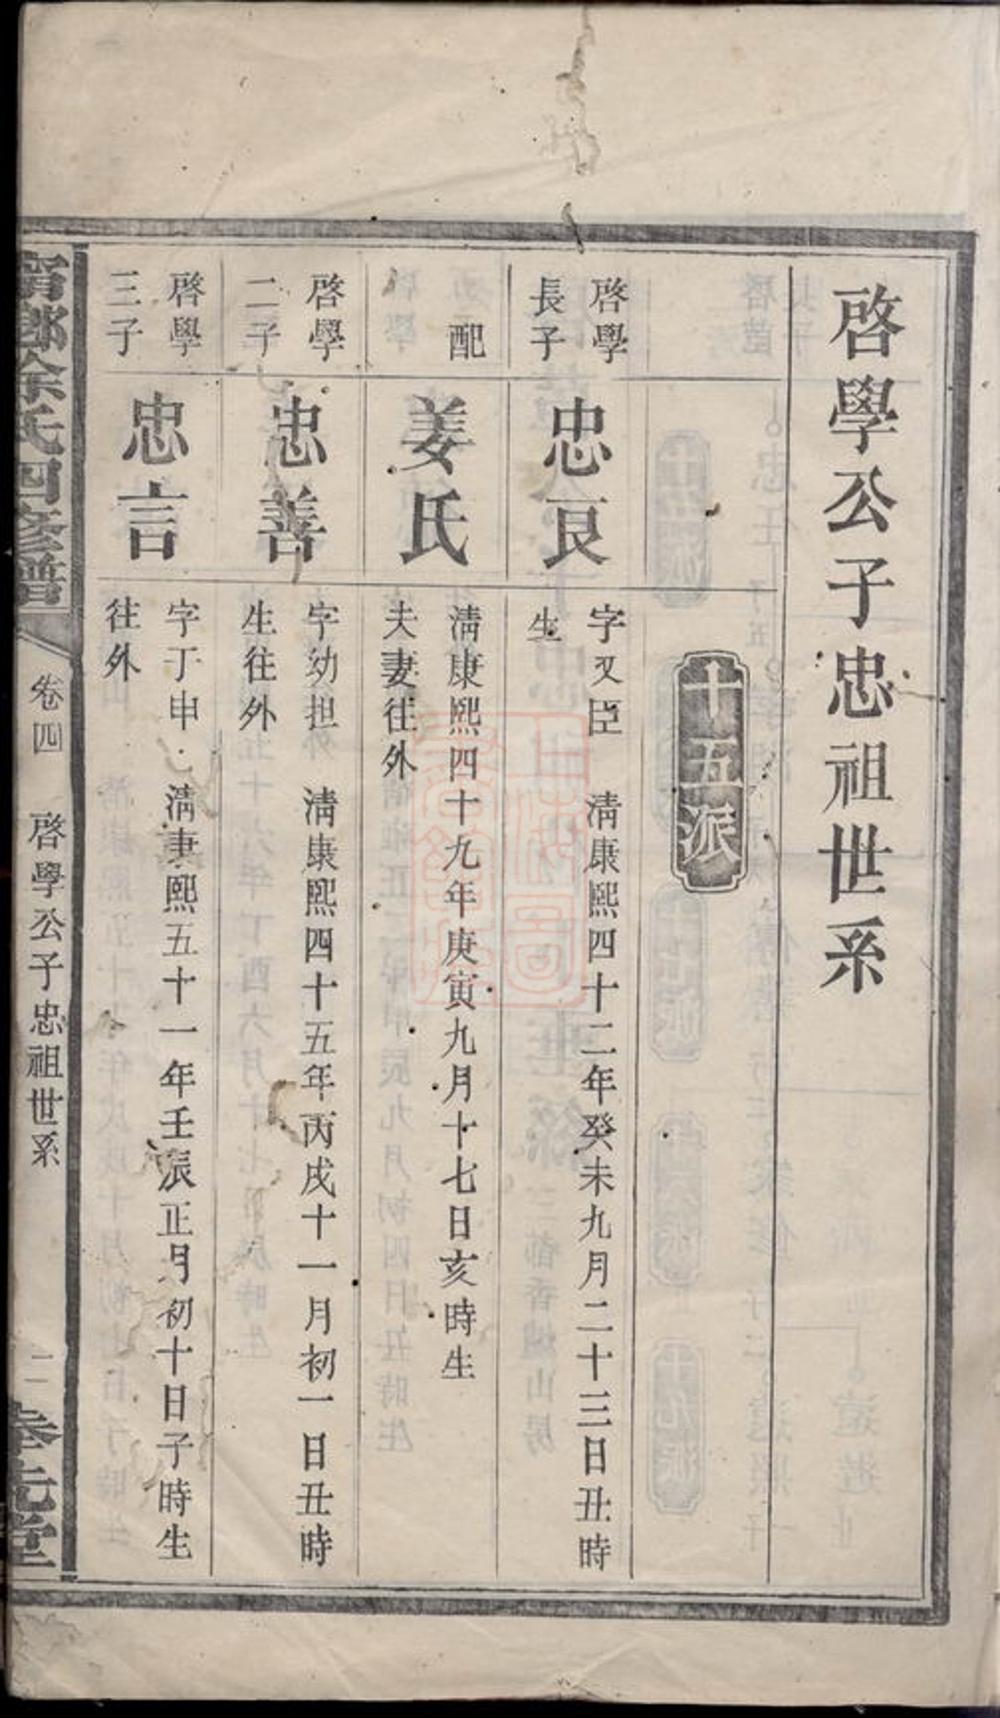 啓學公子忠祖世系
十五派
啓學
長子
忠良
字又臣　清康熙四十二年癸未九月二十三日丑時
生
配
姜氏
清康熙四十九年庚寅九月十七日亥時生
夫妻往外
啓學
二子
忠善
字幼担　清康熙四十五年丙戌十一月初一日丑時
生往外
啓學
三子
忠言
字丁申　清康熙五十一年壬辰正月初十日子時生
往外
甯鄉徐氏四修譜
卷四
啓學公子忠祖世系
二
奉先堂